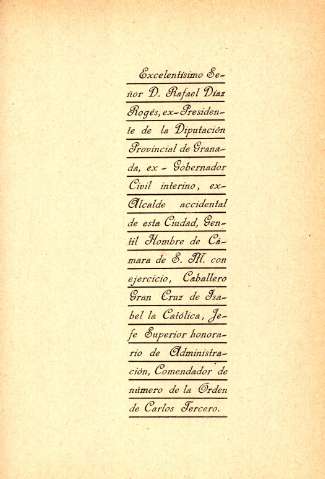 Excelentísimo Se-
ñor D. Rafael Díaz
Rogés, ex-Presiden-
te de la Diputación
Provincial de Grana-
da, ex - Gobernador
Civil interino, ex-
Alcalde accidental
de esta Ciudad, Gen-
til Hombre de Cá-
mara de S. M. con
ejercicio, Caballero
Gran Cruz de Isa-
bel la Católica, Je-
fe Superior honora-
rio de Administra-
ción, Comendador de
número de la Orden
de Carlos Tercero.